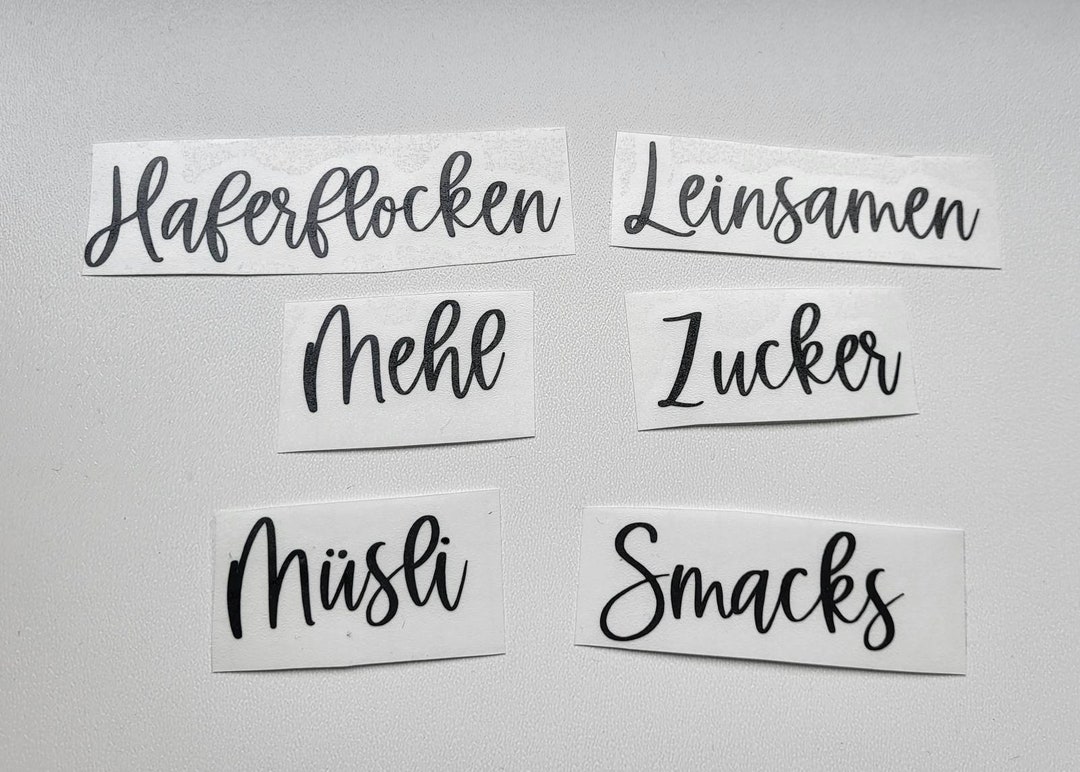 Haferflocken Leinsamen
Mehl Zucker
Müsli Smacks